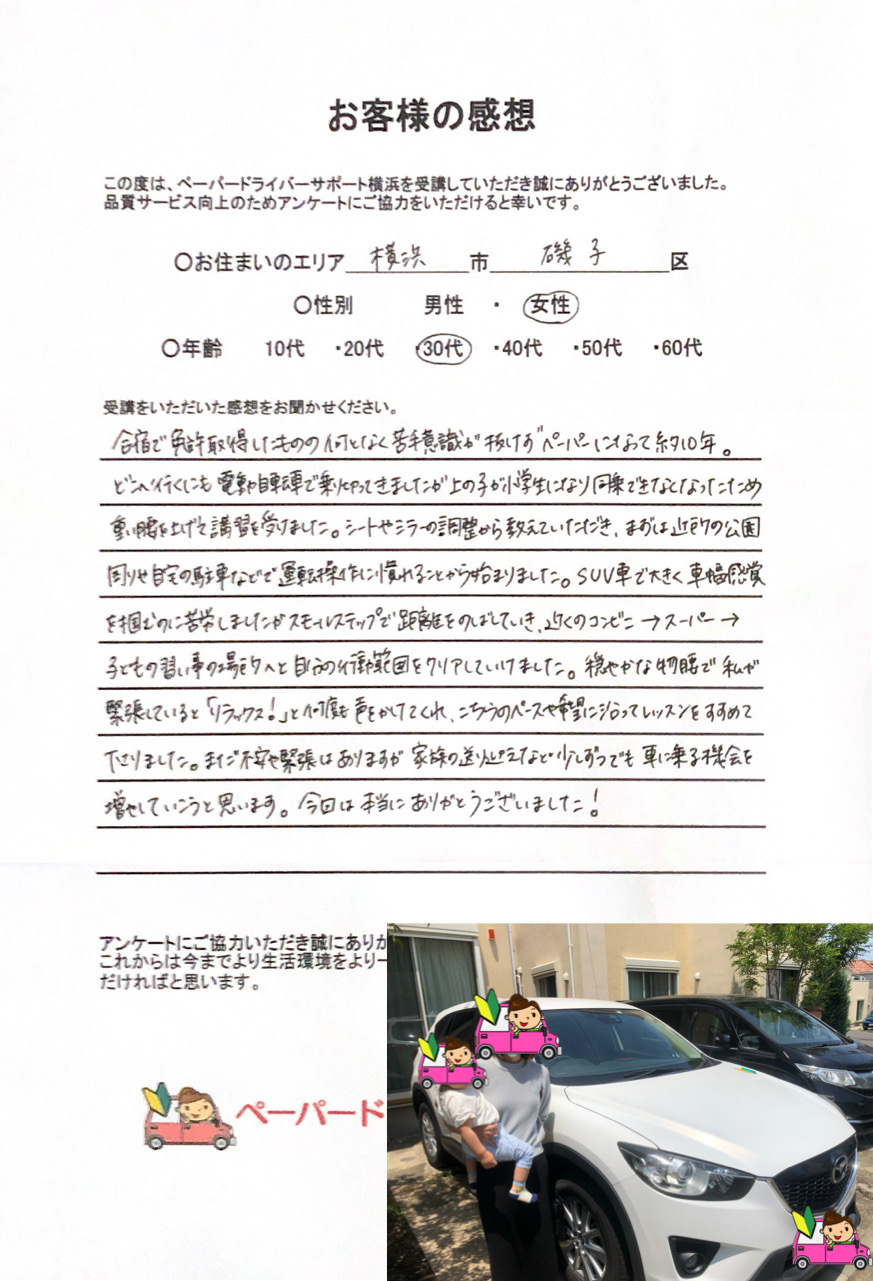 お客様の感想
この度は、ペーパードライバーサポート横浜を受講していただき誠にありがとうございました。
品質サービス向上のためアンケートにご協力をいただけると幸いです。
〇お住まいのエリア 横浜 市 磯子 区
〇性別 男性 ・ 女性
〇年齢 10代 ・20代 ・30代 ・40代 ・50代 ・60代
受講をいただいた感想をお聞かせください。
合宿で免許取得したものの何となく苦手意識が抜けずペーパーになって約10年。
どこへ行くにも電動自転車で乗り切ってきましたが上の子が小学生になり同乗できなくなったため
重い腰を上げて講習を受けました。シートやミラーの調整から教えていただき、まずは近所の公園
周りや自宅の駐車などで運転操作に慣れることから始まりました。SUV車で大きく車幅感覚
を掴むのに苦労しましたがスモールステップで距離をのばしていき、近くのコンビニ→スーパー→
子どもの習い事の場所へと自分の行動範囲をクリアしていけました。穏やかな物腰で私が
緊張していると「リラックス!」と何度も声をかけてくれ、こちらのペースや希望に沿ってレッスンをすすめて
下さりました。まだ不安や緊張はありますが家族の送り迎えなど少しずつでも車に乗る機会を
増やしていこうと思います。今回は本当にありがとうございました!
アンケートにご協力いただき誠にありが
これからは今までより生活環境をより一
だければと思います。
ペーパード